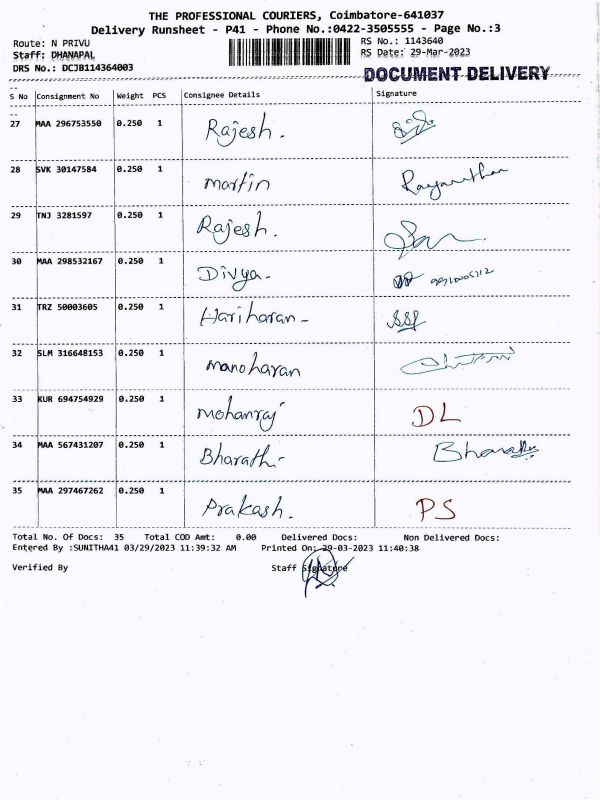 THE PROFESSIONAL COURIERS, Coimbatore-641037
Delivery Runsheet - P41 - Phone No.:0422-3505555 - Page No.:3
Route: N PRIVU RS No.: 1143640
Staff: DHANAPAL RS Date: 29-Mar-2023
DRS No.: DCJB114364003 DOCUMENT DELIVERY
S No Consignment No Weight PCS Consignee Details Signature
27 MAA 296753550 0.250 1 Rajesh.
28 SVK 30147584 0.250 1 Martin
29 TNJ 3281597 0.250 1 Rajesh.
30 MAA 298532167 0.250 1 Divya-
31 TRZ 50003605 0.250 1 Hariharan- SSP
32 SLM 316648153 0.250 1 Manoharan
33 KUR 694754929 0.250 1 Mohanraj DL
34 MAA 567431207 0.250 1 Bharathi-
35 MAA 297467262 0.250 1 Prakash. PS
Total No. Of Docs: 35 Total COD Amt: 0.00 Delivered Docs: Non Delivered Docs:
Entered By :SUNITHA41 03/29/2023 11:39:32 AM Printed On: 29-03-2023 11:40:38
Verified By Staff Signature